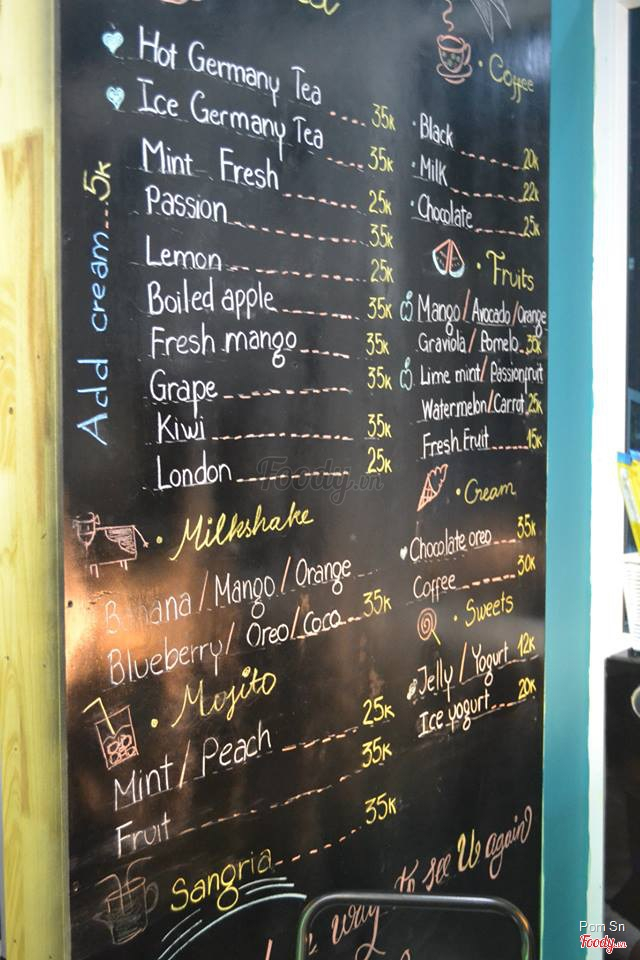 Add cream...5K
Hot Germany Tea .... 35K
Ice Germany Tea .... 35K
Mint Fresh 25K
Passion 35K
Lemon 25K
Boiled apple 35K
Fresh mango 35K
Grape 35K
Kiwi 35K
London 25K
• Milkshake
Banana / Mango / Orange
Blueberry / Oreo / Coco 35K
• Mojito
Mint / Peach 25K
Fruit 35K
Sangria 35K
• Coffee
• Black 20K
• Milk 22K
• Chocolate 25K
• Fruits
Mango / Avocado / Orange
Graviola / Pomelo 35K
Lime mint / Passionfruit
Watermelon / Carrot 25K
Fresh Fruit 15K
• Cream
Chocolate oreo 35K
Coffee 30K
• Sweets
Jelly / Yogurt 12K
Ice yogurt 20K
to see U again
way
Foody.vn
Pom Sn
Foody.vn